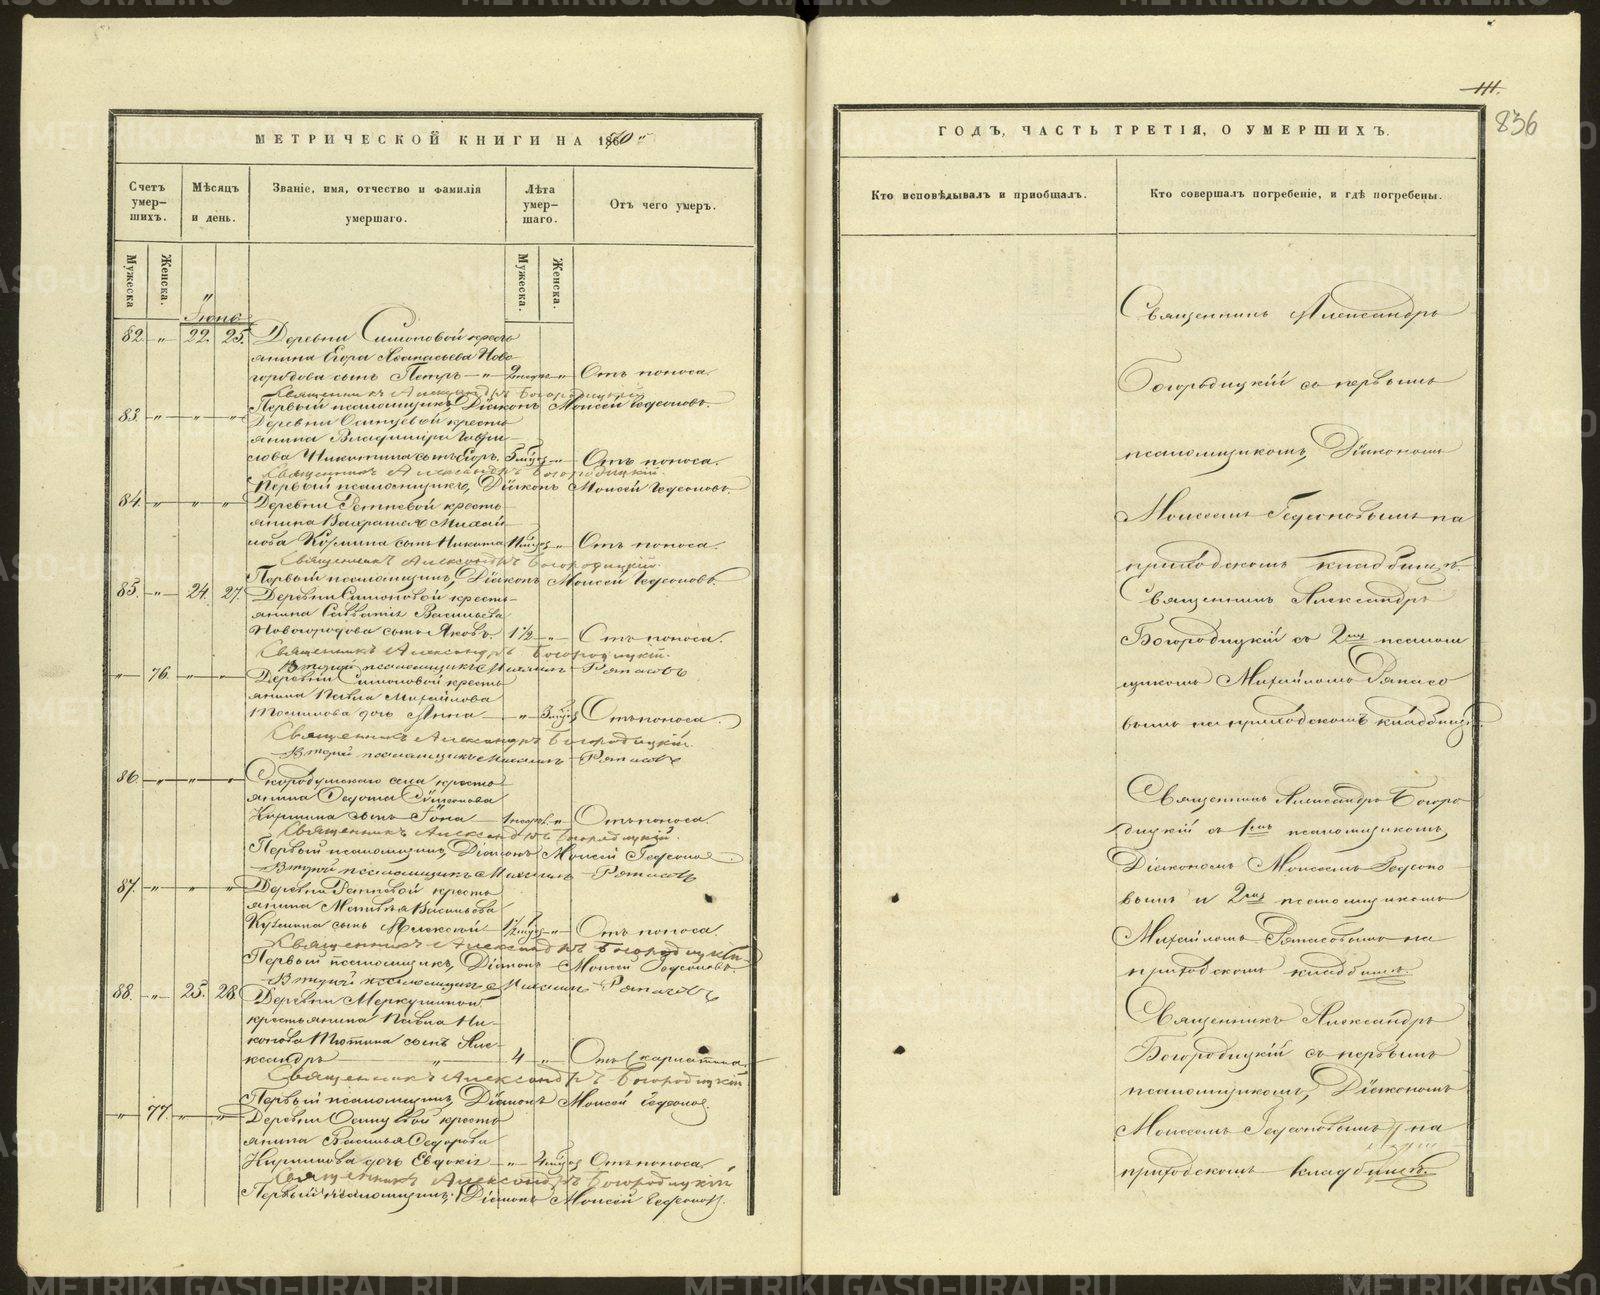 МЕТРИЧЕСКОЙ КНИГИ НА 18
Счетъ умер-шихъ.
Мѣсяцъ и день.
Званіе, имя, отчество и фамилія умершаго.
Лѣта умер-шаго.
Отъ чего умеръ.
Мужеска
Женска.
Мужеска.
Женска.
Іюнь
82. " 22. 25. Деревни Симоновой кресть-
янина Егора Аѳанасьева Ново-
городова сынъ Петръ " Отъ поноса.
Священникъ Александръ Богородицкій
Первый псаломщикъ, Діаконъ Моисей Гедеоновъ.
83. " " " Деревни Осинцевой кресть-
янина Владиміра
Никитина сынъ Егоръ. " Отъ поноса.
Священникъ Александръ Богородицкій.
Первый псаломщикъ, Діаконъ Моисей Гедеоновъ.
84. " " " Деревни Ретневой кресть-
янина Михай-
лова Кузмина сынъ Никита " Отъ поноса.
Священникъ Александръ Богородицкій.
Первый псаломщикъ, Діаконъ Моисей Гедеоновъ.
85. " 24. 27. Деревни Симоновой кресть-
янина Савватія Васильева
Новогородова сынъ Яковъ. 1½ " Отъ поноса.
Священникъ Александръ Богородицкій.
Второй псаломщикъ Михаилъ
" 76. " " Деревни Симоновой кресть-
янина Павла Михайлова
дочь Анна " Отъ поноса.
Священникъ Александръ Богородицкій.
Второй псаломщикъ Михаилъ
86. " " " Скородумскаго села кресть-
янина Ѳедота
сынъ Іона " Отъ поноса.
Священникъ Александръ Богородицкій.
Первый псаломщикъ, Діаконъ Моисей Гедеоновъ
Второй псаломщикъ Михаилъ
87. " " " Деревни Ретневой кресть-
янина Матвѣя Васильева
Кузмина сынъ Алексѣй " Отъ поноса.
Священникъ Александръ Богородицкій
Первый псаломщикъ, Діаконъ Моисей Гедеоновъ
Второй псаломщикъ Михаилъ
88. " 25. 28. Деревни Меркушиной
крестьянина Павла Ни-
конова сынъ Але-
ксандръ " 4 " Отъ скарлатины
Священникъ Александръ Богородицкій
Первый псаломщикъ, Діаконъ Моисей Гедеоновъ.
" 77. " " Деревни Осинцевой кресть-
янина Василья Ѳедорова
дочь Евдокія " Отъ поноса.
Священникъ Александръ Богородицкій
Первый псаломщикъ, Діаконъ Моисей Гедеоновъ.
836
ГОДЪ, ЧАСТЬ ТРЕТІЯ, О УМЕРШИХЪ.
Кто исповѣдывалъ и пріобщалъ.
Кто совершалъ погребеніе, и гдѣ погребены.
Священникъ Александръ
Богородицкій съ первымъ
псаломщикомъ, Діакономъ
Моисеемъ Гедеоновымъ на
приходскомъ кладбищѣ.
Священникъ Александръ
Богородицкій съ 2мъ псалом
щикомъ Михайломъ
вымъ на приходскомъ кладбищѣ.
Священникъ Александръ Богоро
дицкій съ 1мъ псаломщикомъ,
Діакономъ Моисеемъ Гедеоно
вымъ и 2мъ псаломщикомъ
Михайломъ на
приходскомъ кладбищѣ.
Священникъ Александръ
Богородицкій съ первымъ
псаломщикомъ, Діакономъ
Моисеемъ Гедеоновымъ на
приходскомъ кладбищѣ.
METRIKI.GASO-URAL.RU